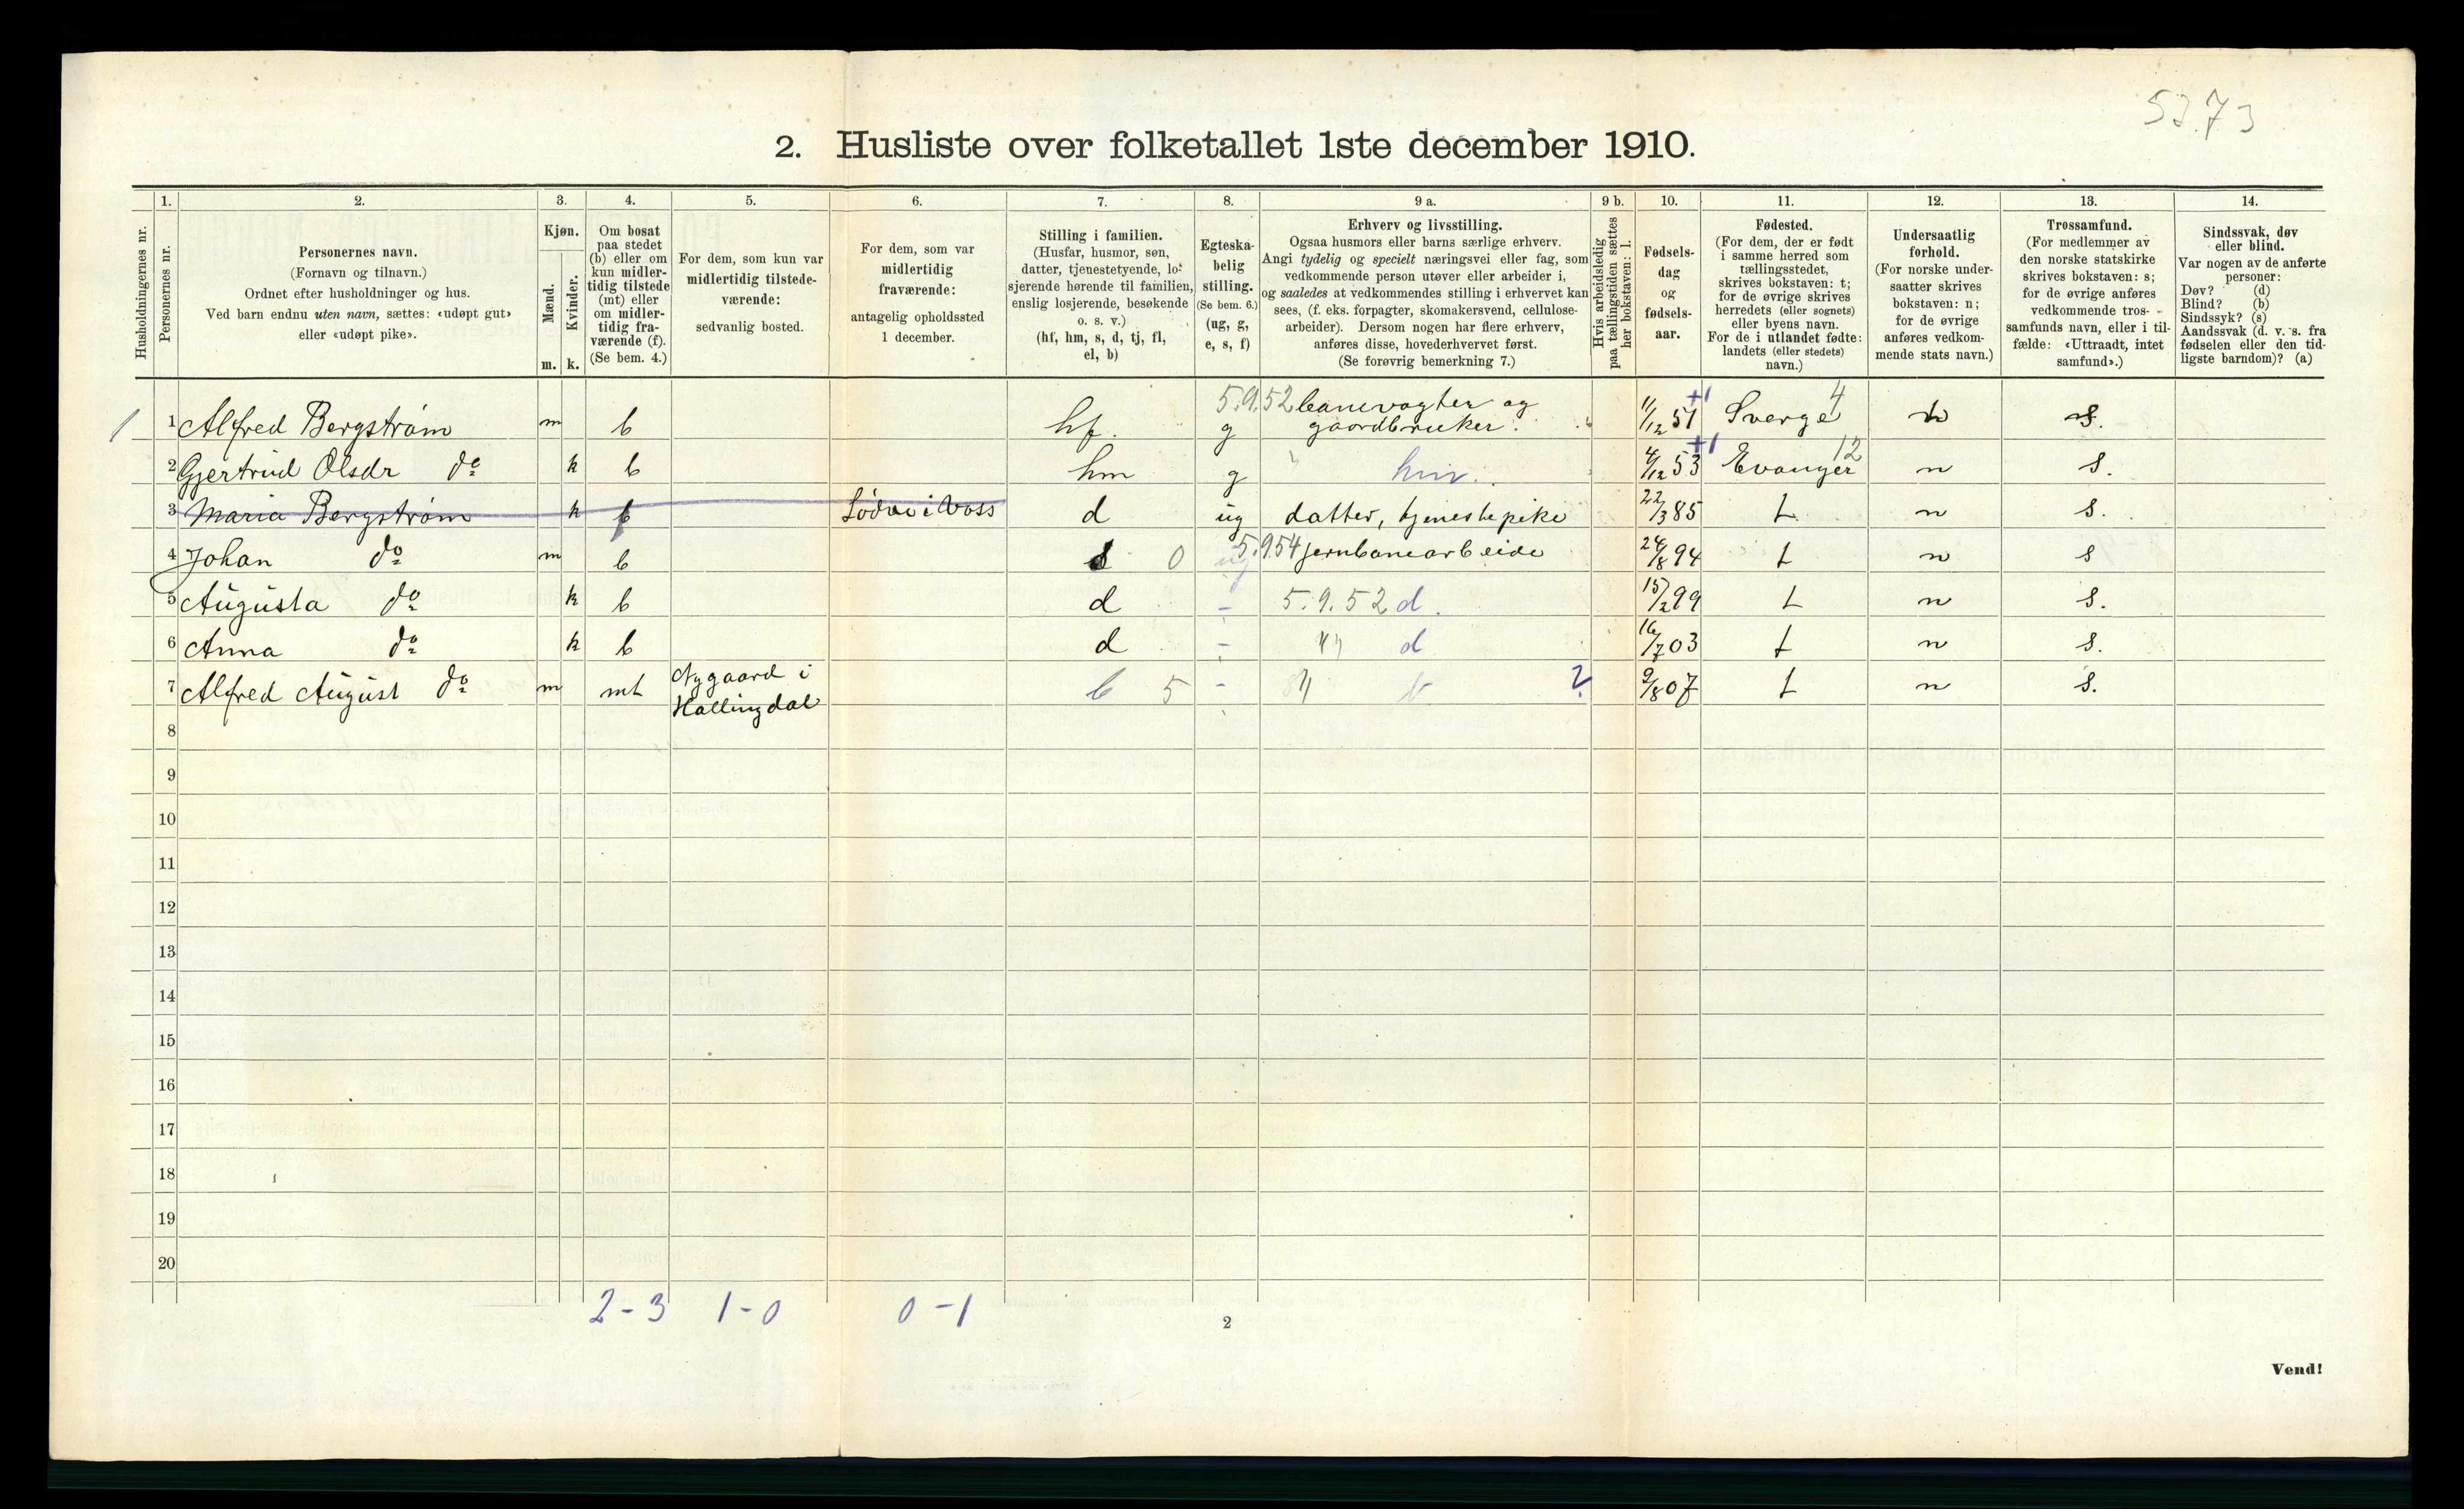 53.73
2. Husliste over folketallet 1ste december 1910.
Husholdningernes nr.
1.
Personernes nr.
2.
Personernes navn.
(Fornavn og tilnavn.)
Ordnet efter husholdninger og hus.
Ved barn endnu uten navn, sættes: «udøpt gut»
eller «udøpt pike».
3.
Kjøn.
Mænd.
Kvinder.
m. k.
4.
Om bosat
paa stedet
(b) eller om
kun midler-
tidig tilstede
(mt) eller
om midler-
tidig fra-
værende (f).
(Se bem. 4.)
5.
For dem, som kun var
midlertidig tilstede-
værende:
sedvanlig bosted.
6.
For dem, som var
midlertidig
fraværende:
antagelig opholdssted
1 december.
7.
Stilling i familien.
(Husfar, husmor, søn,
datter, tjenestetyende, lo-
sjerende hørende til familien,
enslig losjerende, besøkende
o. s. v.)
(hf, hm, s, d, tj, fl,
el, b)
8.
Egteska-
belig
stilling.
(Se bem. 6.)
(ug, g,
e, s, f)
9 a.
Erhverv og livsstilling.
Ogsaa husmors eller barns særlige erhverv.
Angi tydelig og specielt næringsvei eller fag, som
vedkommende person utøver eller arbeider i,
og saaledes at vedkommendes stilling i erhvervet kan
sees, (f. eks. forpagter, skomakersvend, cellulose-
arbeider). Dersom nogen har flere erhverv,
anføres disse, hovederhvervet først.
(Se forøvrig bemerkning 7.)
9 b.
Hvis arbeidsledig
paa tællingstiden sættes
her bokstaven: l.
10.
Fødsels-
dag
og
fødsels-
aar.
11.
Fødested.
(For dem, der er født
i samme herred som
tællingsstedet,
skrives bokstaven: t;
for de øvrige skrives
herredets (eller sognets)
eller byens navn.
For de i utlandet fødte:
landets (eller stedets)
navn.)
12.
Undersaatlig
forhold.
(For norske under-
saatter skrives
bokstaven: n;
for de øvrige
anføres vedkom-
mende stats navn.)
13.
Trossamfund.
(For medlemmer av
den norske statskirke
skrives bokstaven: s;
for de øvrige anføres
vedkommende tros-
samfunds navn, eller i til-
fælde: «Uttraadt, intet
samfund».)
14.
Sindssvak, døv
eller blind.
Var nogen av de anførte
personer:
Døv? (d)
Blind? (b)
Sindssyk? (s)
Aandssvak (d. v. s. fra
fødselen eller den tid-
ligste barndom)? (a)
1 1 Alfred Bergstrøm m b hf. g 5.9.52 banevogter og gaardbruker. 11/12 51 +1 Sverge 4 n s.
2 Gjertrud Olsdr do k b hm g hm. 4/12 53 +1 Evanger 12 n s.
3 Maria Bergstrøm k f Lødve i Voss d ug datter, tjenestepike 22/3 85 t n s.
4 Johan do m b s 0 ug 5.9.54 jernbanearbeide 24/8 94 t n s
5 Augusta do k b d - 5.9.52 d. 15/2 99 t n s.
6 Anna do k b d - " d 16/7 03 t n s.
7 Alfred August do m mt Nygaard i Hallingdal b 5 - " b ? 9/8 07 t n s.
8
9
10
11
12
13
14
15
16
17
18
19
20
2-3 1-0 0-1
2
Vend!